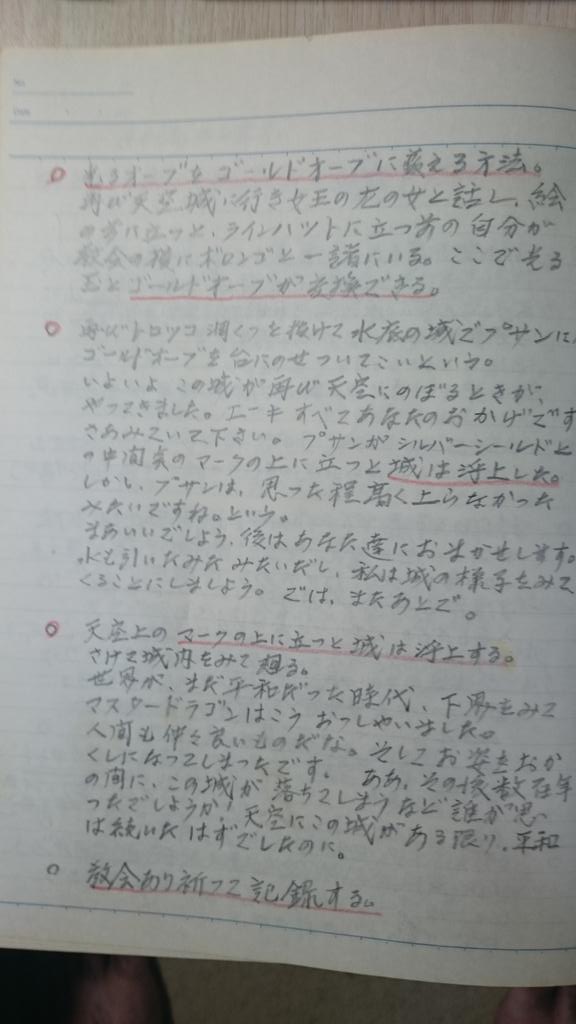 光るオーブをゴールドオーブに変える方法。
再び天空城に行き女王の左の女と話し、絵
の前に立つと、ラインハットに立つ前の自分が
教会の横にボロンゴと一諸にいる。ここで光る
玉とゴールドオーブが交換できる。
再びトロッコ洞くつを抜けて水底の城でプサンに
ゴールドオーブを台にのせついてこいという。
いよいよこの城が再び天空にのぼるときが、
やってきました。エーキすべてあなたのおかげです
さあみていて下さい。プサンがシルバーシールドと
の中間矣のマークの上に立つと城は浮上した。
しかし、プサンは、思った程高く上らなかった
みたいですね。という。
まあいいでしょう、後はあなた達におまかせします。
水も引いたみたみたいだし、私は城の様子をみて
くることにしましょう。では、またあとで。
天空上のマークの上に立つと城は浮上する。
さけて城内をみて廻る。
世界が、まだ平和だった時代、下界をみて
マスタードラゴンはこうおっしゃいました。
人間も仲々良いものだな。そしてお姿をおか
くしになってしまったです。ああ、その後数百年
の間に、この城が落ちてしまうなど誰が思
ったでしょうか!天空にこの城がある限り、平和
は続いたはずでしたのに。
教会あり祈って記録する。